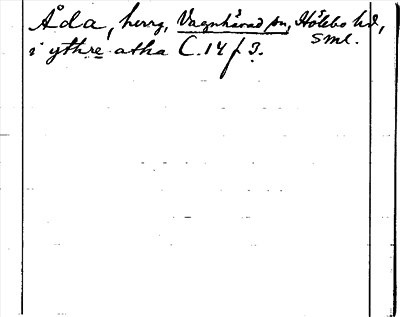 Åda, herrg, Vagnhärad sn, Hölebo hd,
Sml.
i ythre atha C. 14 f 3.